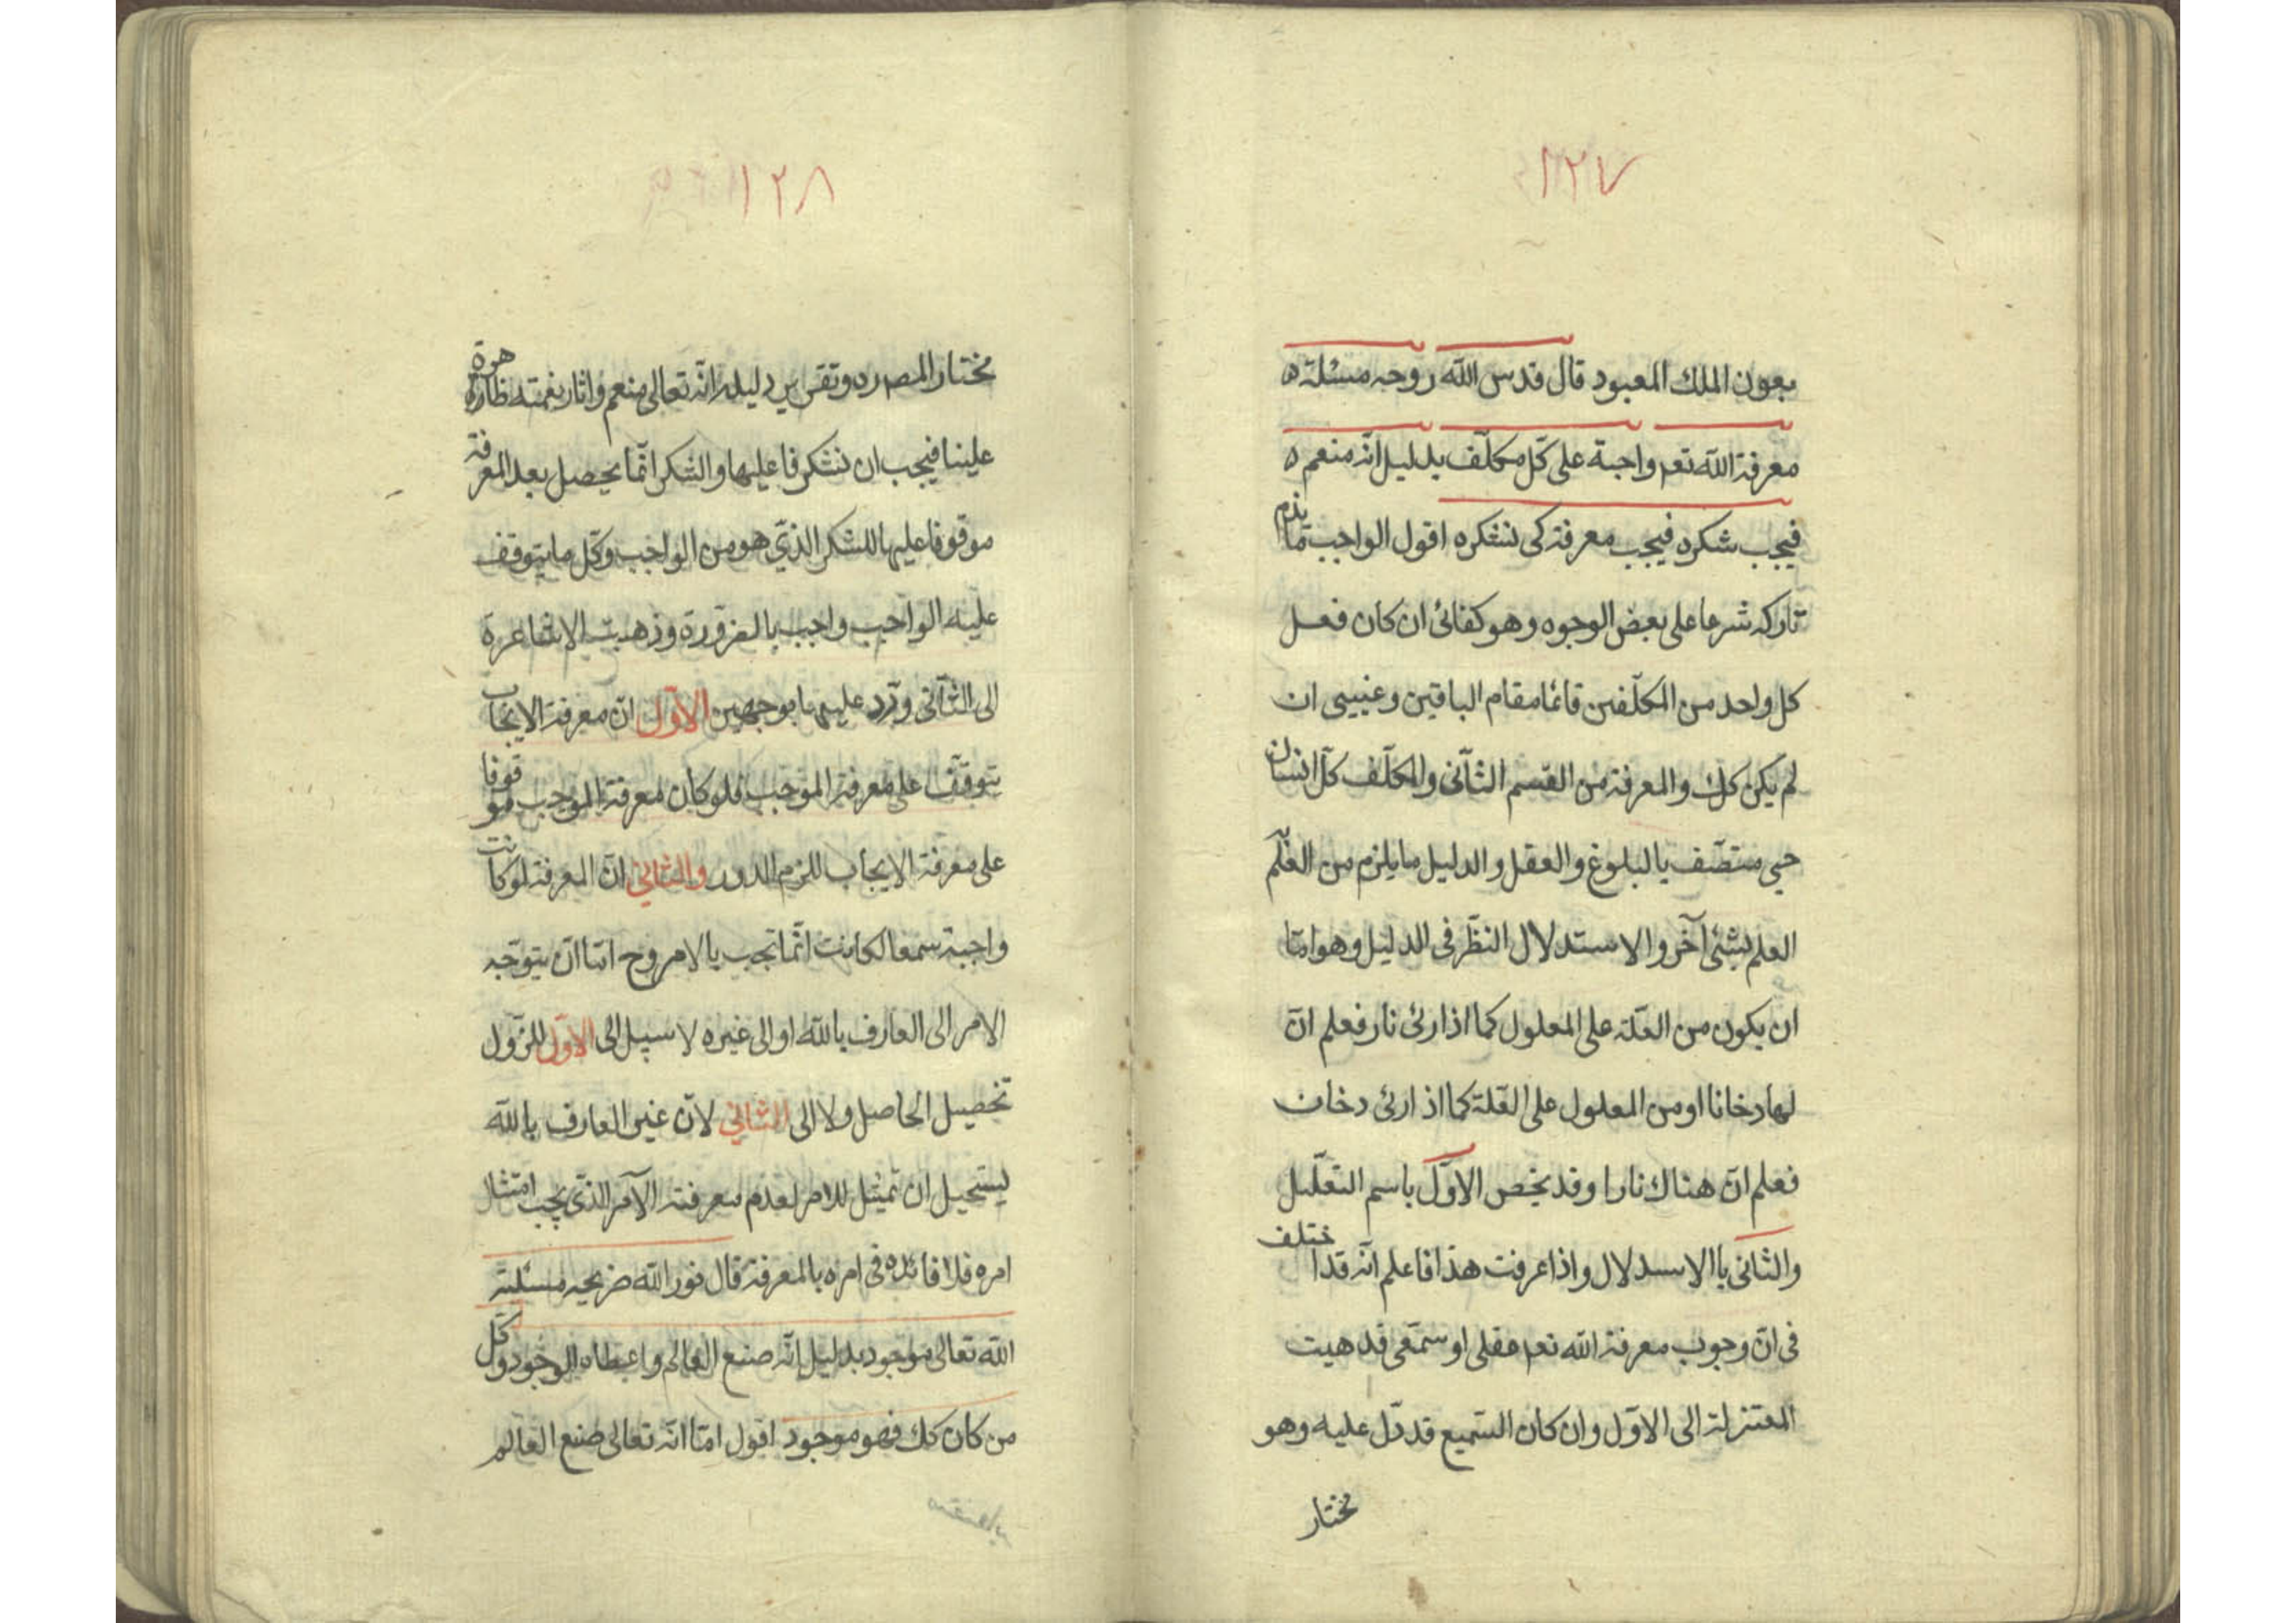 ١٢٧
بعون الملك المعبود قال قدس الله روحه مسئلة
معرفة الله تعم واجبة على كلّ مكلّف بدليل انّه منعم
فيجب شكره فيجب معرفته كى نشكره اقول الواجب ما يذم
تاركه شرعا على بعض الوجوه وهو كفائى ان كان فعل
كل واحد من المكلّفين قائما مقام الباقين وعينى ان
لم يكن كك والمعرفة من القسم الثّانى والمكلّف كلّ انسان
حى متصّف بالبلوغ والعقل والدليل ما يلزم من العلّم
العلم بشئ آخر والاستدلال النظّر فى الدليل وهو امّا
ان يكون من العّلة على المعلول كما اذا رئى نار فعلم انّ
لها دخانا او من المعلول على العّلة كما اذا رئى دخان
فعلم انّ هناك نارا وقد يخص الاوّل باسم التعلّيل
والثانى باالاسدلال واذا عرفت هذا فاعلم انّه قد اختلف
فى انّ وجوب معرفة الله تعم عقلى او سمّعى فذهبت
المعتزلة الى الاوّل وان كان السّميع قد دّل عليه وهو
مختار
١٢٨
مختار المصره وتقرير دليله انّه تعالى منعم واثار نعمته ظاهرة
علينا فيجب ان نشكر فاعليها والشكر انّما يحصل بعد المعرفة
موقوفا عليها للشكر الذّي هو من الواجب وكّل ما يتوقف
عليه الواجب واجب بالضرورة وذهبت الاشاعرة
الى الثّانى ويرد عليهما بوجهين الاوّل انّ معرفة الايجاب
يتوقّف على معرفة الموجب فلو كان معرفة الموجب موقوفا
على معرفة الايجاب للزم الدور والثاني انّ المعرفة لو كانت
واجبة سمعا لكانت انّما تجب بالامر وح امّا انّ يتوّجه
الامر الى العارف بالله او الى غيره لا سبيل الى الاوّل للزّول
تحصيل الحاصل ولا الى الثاني لانّ غير العارف بالله
يستحيل ان تمثيل للامر لعدم معرفته الآمر الذّى يجب امتثال
امره فلا فائده فى امره بالمعرفة قال نور الله ضريحه مسئلة
الله تعالى موجود بدليل انّه صنع العالم واعطاه الوجود وكلّ
من كان كك فهو موجود اقول امّا انّه تعالى صنع العالم